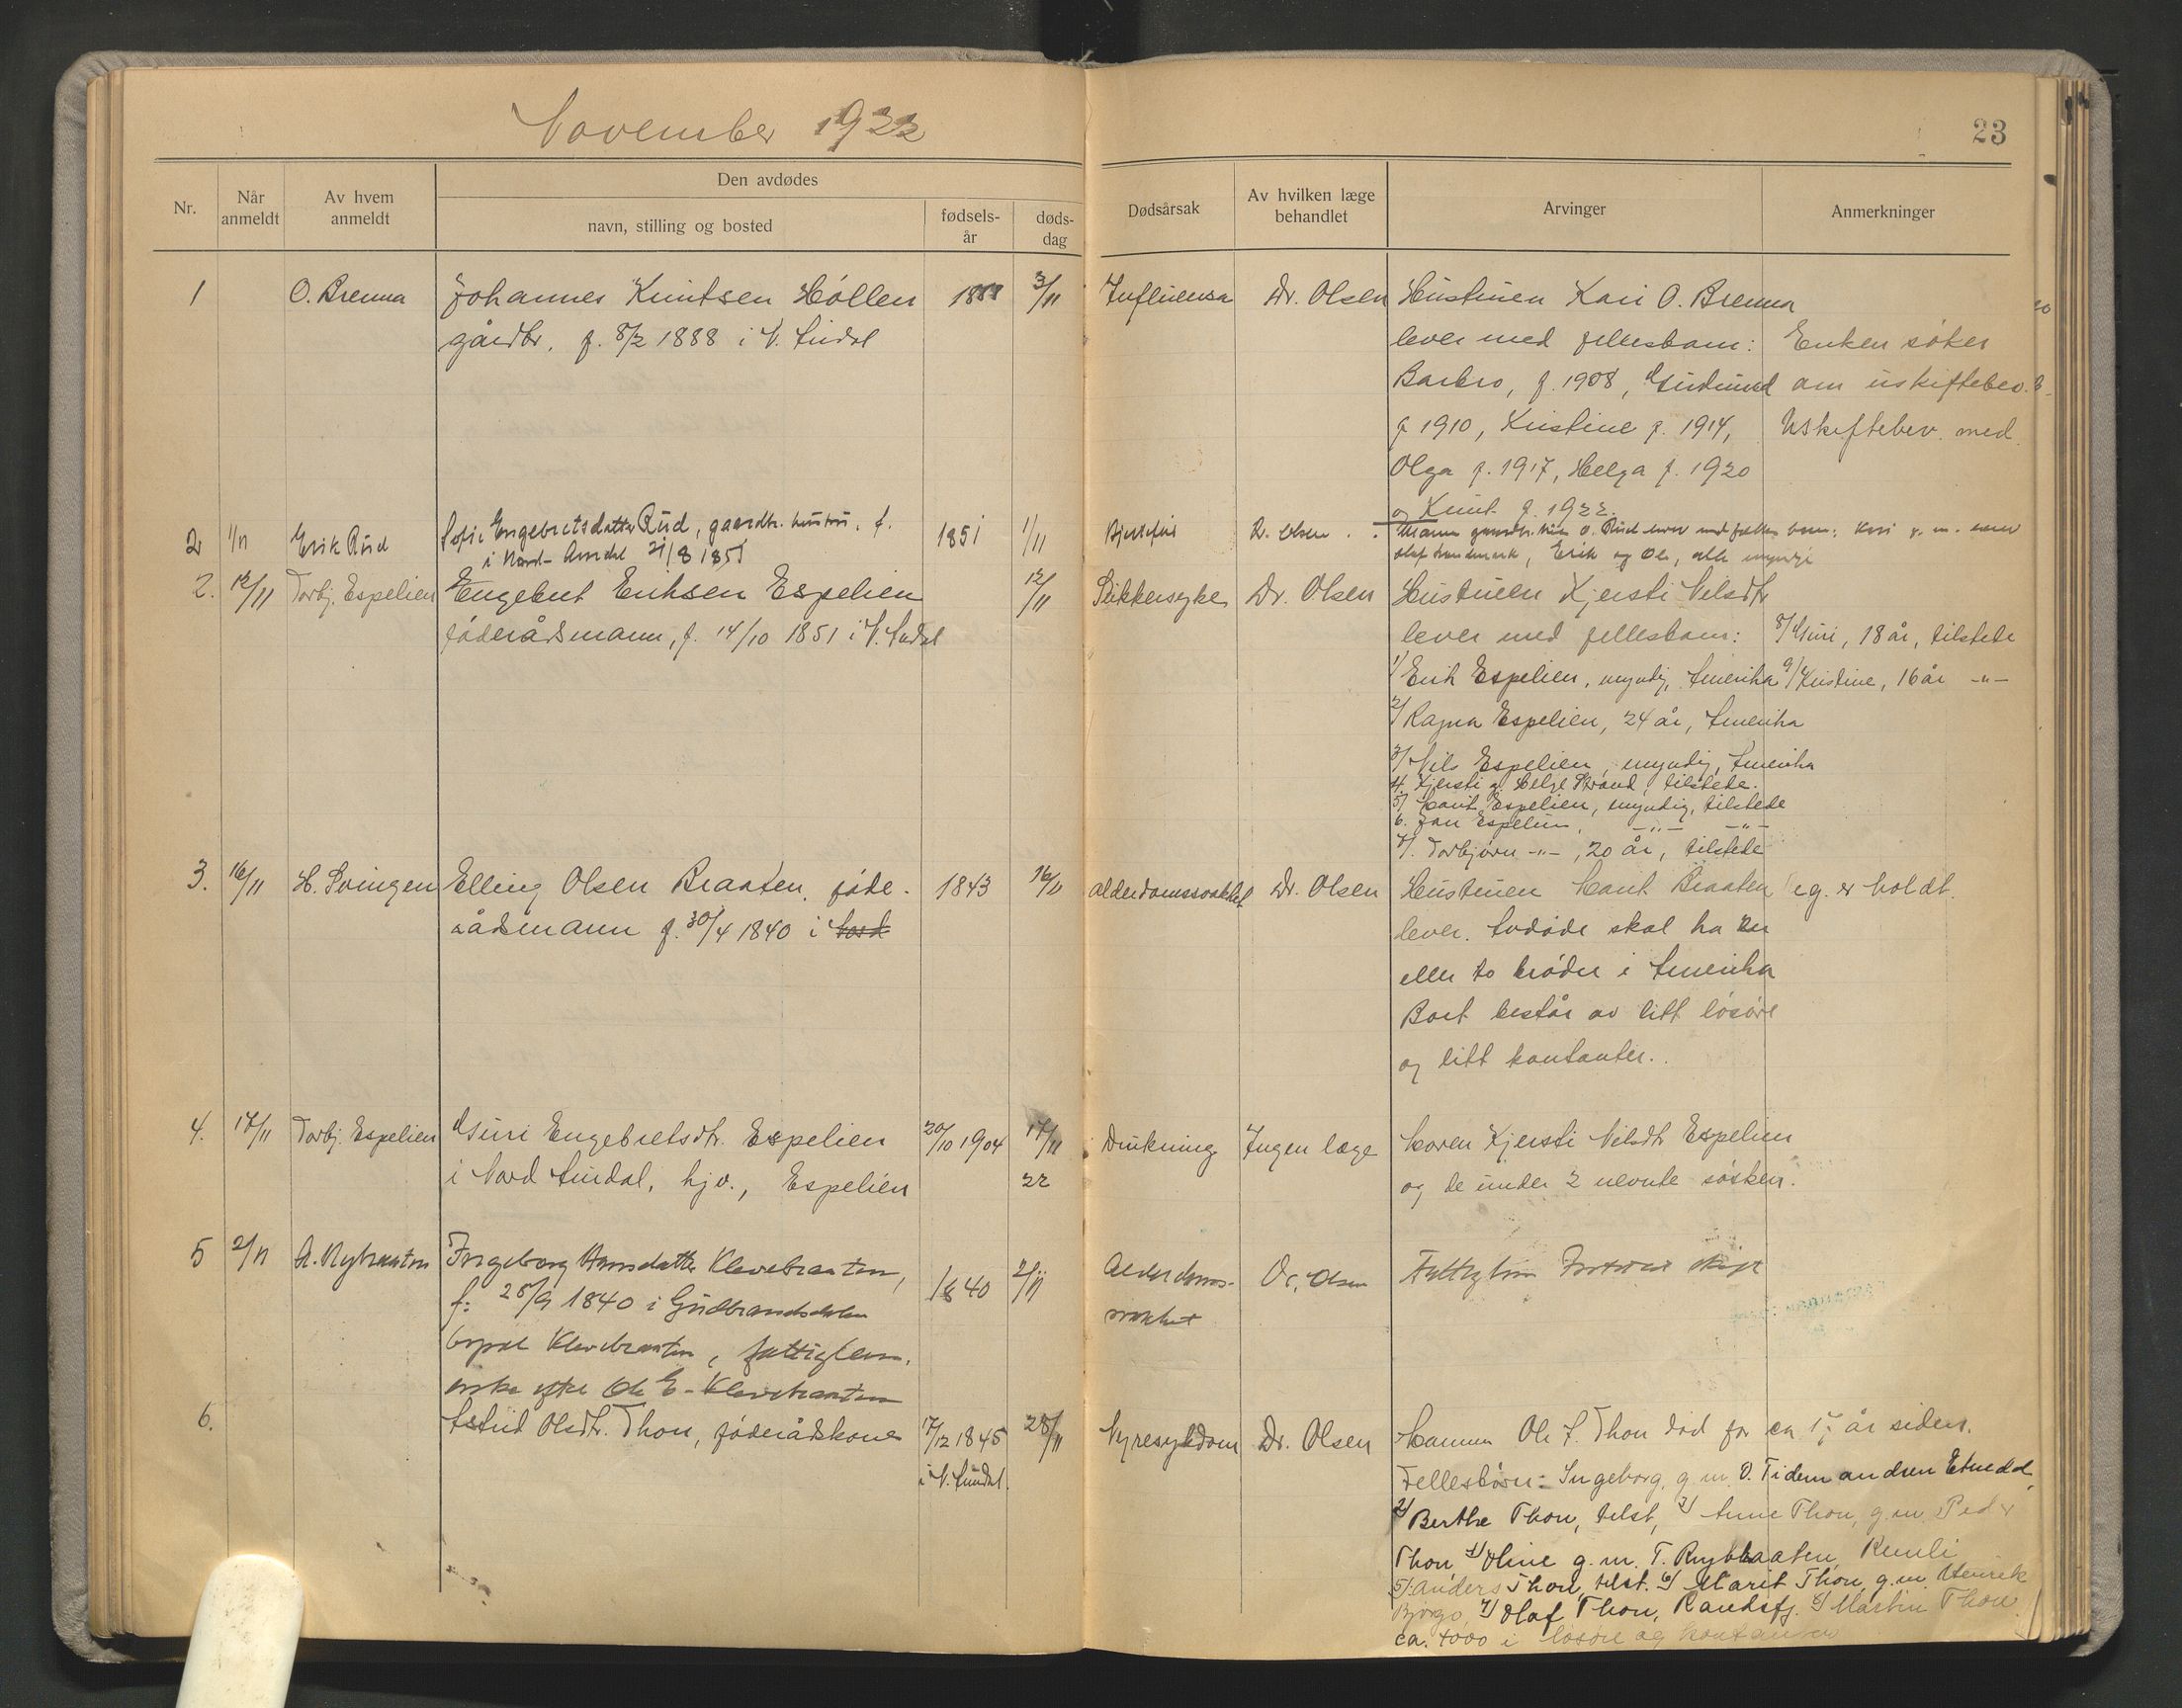 November 1922
23
Nr.
Når anmeldt
Av hvem anmeldt
Den avdødes
navn, stilling og bosted
fødsels-år
døds-dag
Dødsårsak
Av hvilken læge behandlet
Arvinger
Anmerkninger
1 O. Brenna Johannes Knutsen Hóllen 1888 3/11 Influensa Dr. Olsen Hustruen Kari O. Brenna
gårdbr. f. 8/2 1888 i N. Aurdal lever med fellesbarn: Enken søker
Barbro, f. 1908, Gudmund om uskiftebev.
f 1910, Kristine f. 1914, Uskiftebev. med
Olga f. 1917, Helga f. 1920
og Knut f. 1922.
2 1/11 Erik Rud Sofie Engebretsdatter Rud, gaardbr. hustru, f. 1851 1/11 Hjertefeil Dr. Olsen
i Nord-Aurdal 21/8 1851 Erik og Ole, alle myndige
2. 12/11 Torbj. Espelien Engebret Eriksen Espelien 12/11 Sukkersyke Dr. Olsen Hustruen Kjersti Nilsdtr
føderådsmann, f. 14/10 1851 i N. Aurdal lever med fellesbarn: 8/ Guri, 18 år, tilstede
1/ Erik Espelien, myndig, Amerika 9/ Kristine, 16 år -"-
2/ Ragna Espelien, 24 år, Amerika
3/ Nils Espelien, myndig, Amerika
4. Kjersti g. Helge Strand, tilstede.
5/ Marit Espelien, myndig, tilstede
6. Jan Espelien, -"- -"-
7/. Torbjørn -"-, 20 år, tilstede
3. 16/11 H. Svingen Elling Olsen Braaten, føde- 1843 16/11 alderdomssvakhet Dr. Olsen Hustruen Marit Braaten eg. er holdt.
rådsmann f. 30/4 1840 i lever. Avdøde skal ha en
eller to brødre i Amerika
Boet består av litt løsøre
og litt kontanter.
4. 17/11 Torbj. Espelien Guri Engebretsdtr. Espelien 20/10 1904 17/11 Drukning Ingen læge Moren Kjersti Nilsdtr Espelien
i Nord Aurdal, hjv., Espelien 22 og de under 2 nevnte søsken.
5 2/11 A. Nybraaten Ingeborg Hansdatter Klevebraaten, 1840 2/11 Alderdoms- Dr. Olsen
f: 28/9 1840 i Gudbrandsdalen svakhet
Klevebraaten, fattiglem.
enke efter Ole E. Klevebraaten
6. Astrid Olsdtr. Thon, føderådskone 17/12 1845 28/11 Nyresykdom Dr. Olsen Mannen Ole J. Thon død for ca 17 år siden.
i N. Aurdal. Fellesbørn: Ingeborg, g. m. O. Tidemandsen Etnedal,
2/ Berthe Thon, tilst, 3/ Anne Thon, g. m. Peder
Thon, 4/ Oline g. m. T. Rybraaten, Renli
5/. Anders Thon, tilst. 6/ Marit Thon, g. m. Henrik
Bjørgo, 7/ Olaf Thon, Randsfj. 8/ Martin Thon.
ca. 4000 i løsøre og kontanter